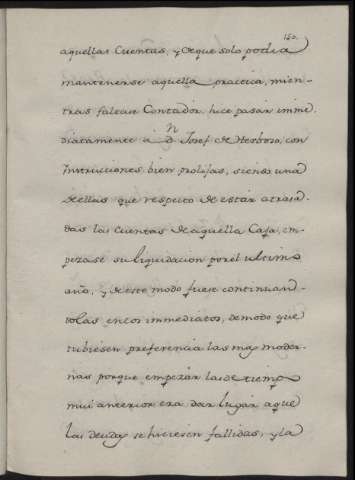 150.
aquellas Cuentas, y de que solo podia
mantenerse aquella practica, mien-
tras faltase Contador, hice pasar imme-
diatamente a Dn Josef de Reoboso, con
Instrucciones bien prolijas, siendo una
de ellas que respecto de estar atrasa
das las Cuentas de aquella Caja, em-
pezase su liquidacion por el ultimo
año, y de este modo fuese continuan
dolas en los immediatos, de modo que
tubiesen preferencia las mas moder-
nas porque empezar las de tiempo
mui anterior era dar lugar a que
las deudas se hiciesen fallidas, y la